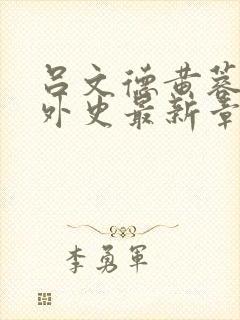 吕文德黄蓉
外史最新章
李勇军